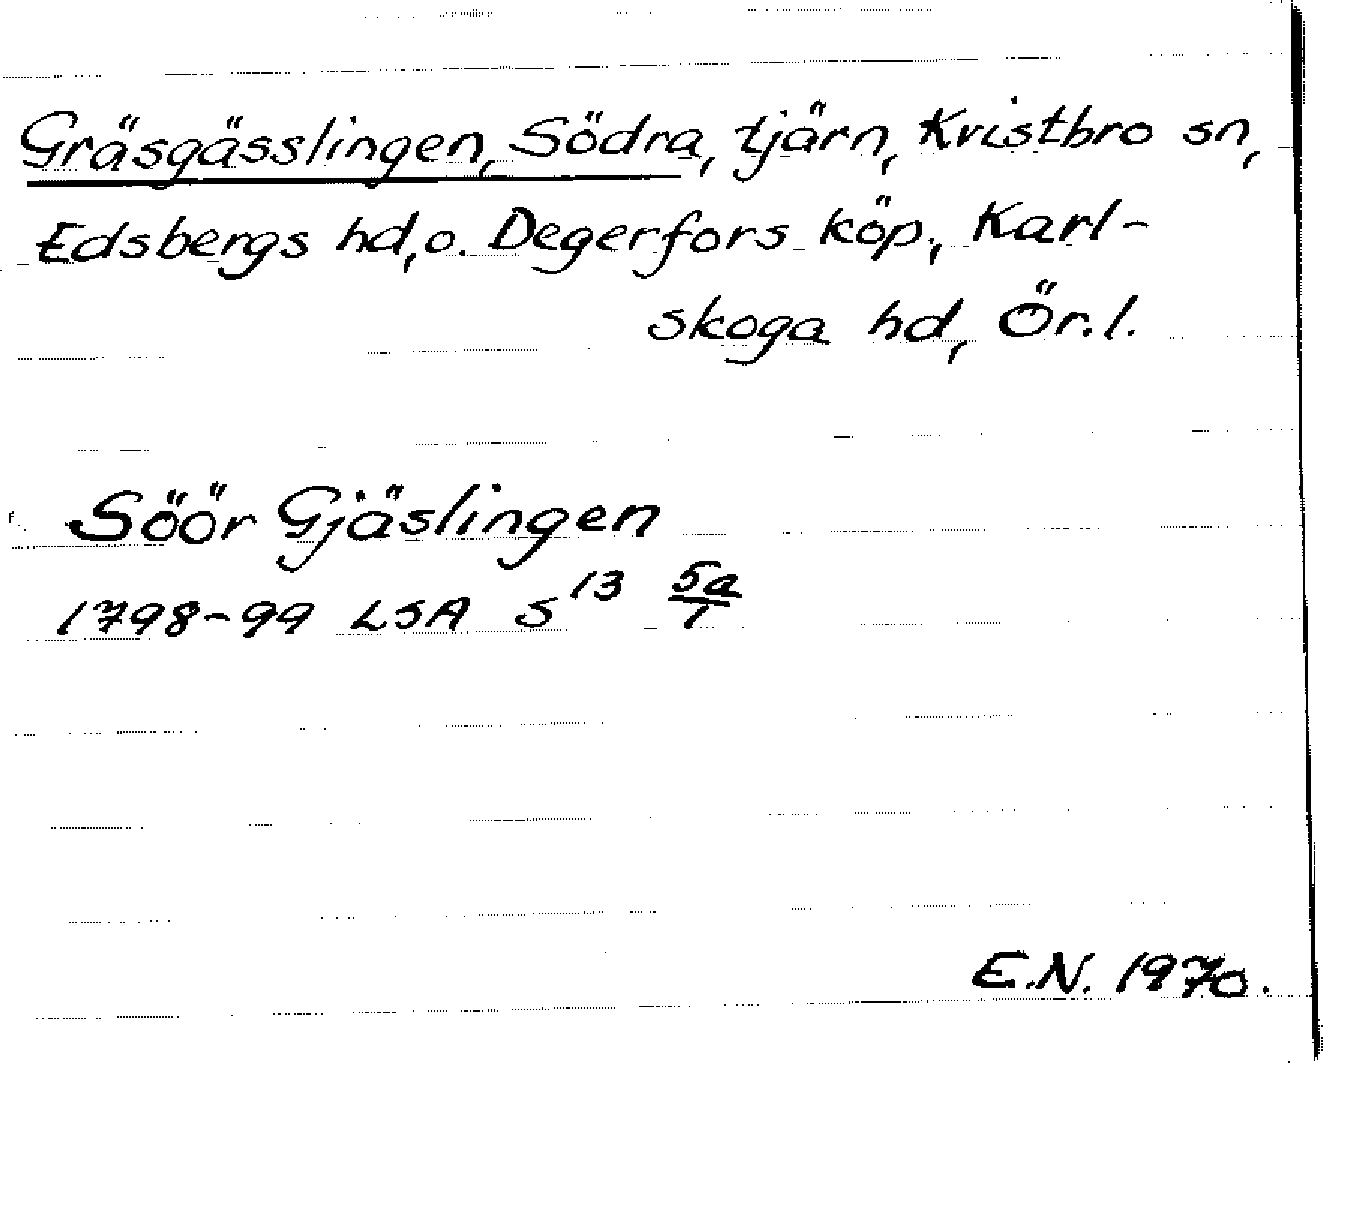 Gräsgässlingen, Södra, tjärn, Kvistbro sn,
Edsbergs hd, o. Degerfors köp, Karl-
skoga hd, Ör.l.
Söör Gjäslingen
1798-99 LSA S¹³ 5a/1
E.N. 1970.